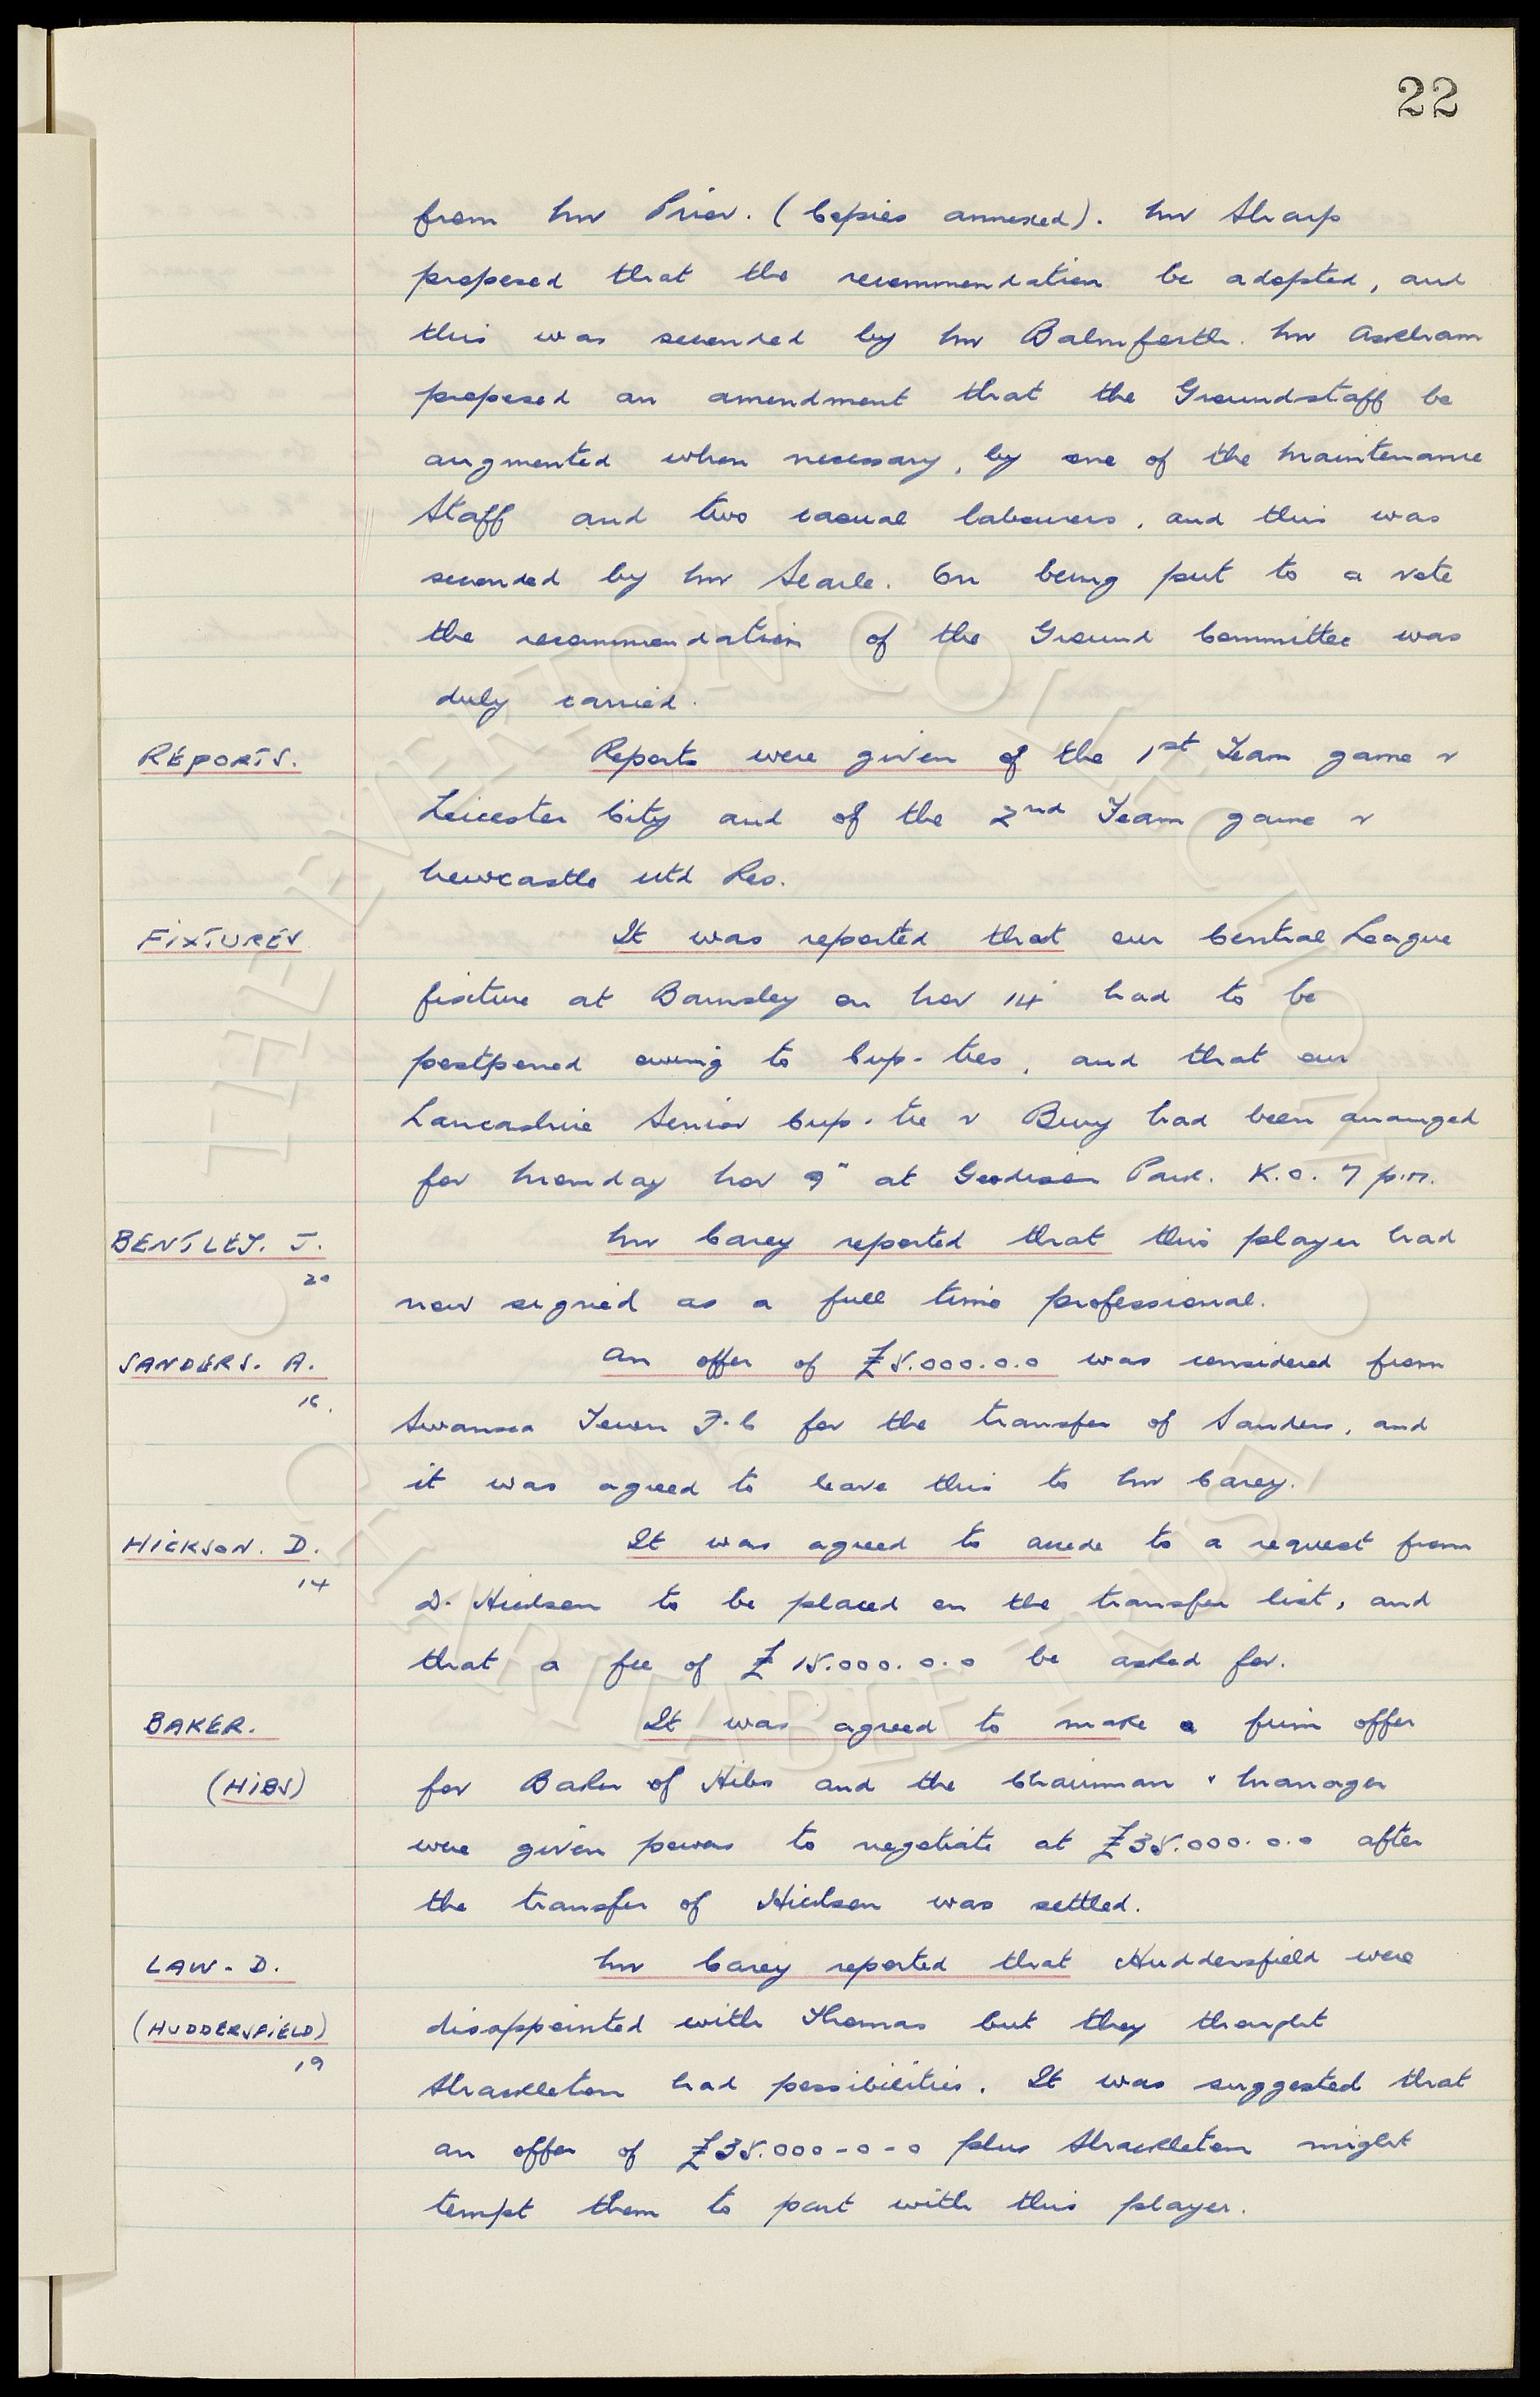 22
from Mr Prior. (Copies annexed). Mr Sharp
proposed that the recommendation be adopted, and
this was seconded by Mr Balmforth. Mr Askham
proposed an amendment that the Groundstaff be
augmented when necessary, by one of the Maintenance
Staff and two casual labourers, and this was
seconded by Mr Searle. On being put to a vote
the recommendation of the Ground Committee was
duly carried.
REPORTS. Reports were given of the 1st Team game v
Leicester City and of the 2nd Team game v
Newcastle Utd Res.
FIXTURES It was reported that our Central League
fixture at Barnsley on Nov 14" had to be
postponed owing to Cup-ties, and that our
Lancashire Senior Cup-tie v Bury had been arranged
for Monday Nov 9" at Goodison Park. K.O. 7 p.m.
BENTLEY. J. Mr Carey reported that this player had
20
now signed as a full time professional.
SANDERS. A. An offer of £5.000.0.0 was considered from
16.
Swansea Town F.C for the transfer of Sanders, and
it was agreed to leave this to Mr Carey.
HICKSON. D. It was agreed to accede to a request from
14
D. Hickson to be placed on the transfer list, and
that a fee of £15.000.0.0 be asked for.
BAKER. It was agreed to make a firm offer
(HIBS) for Baker of Hibs and the Chairman & Manager
were given power to negotiate at £35.000.0.0 after
the transfer of Hickson was settled.
LAW. D. Mr Carey reported that Huddersfield were
(HUDDERSFIELD) disappointed with Thomas but they thought
19
Shackleton had possibilities. It was suggested that
an offer of £35.000-0-0 plus Shackleton might
tempt them to part with this player.
THE EVERTON COLLECTION
CHARITABLE TRUST